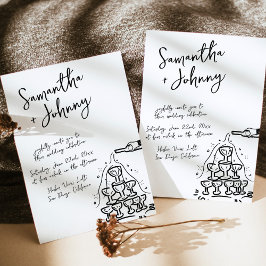 Samantha
+ Johnny
joyfully invite you to
their wedding celebration
Saturday June 22nd 20xx
at four o'clock in the afternoon
San Diego California
Samantha
+ Johnny
joyfully invite you to
their wedding celebration
Saturday June 22nd 20xx
at four o'clock in the afternoon
San Diego California